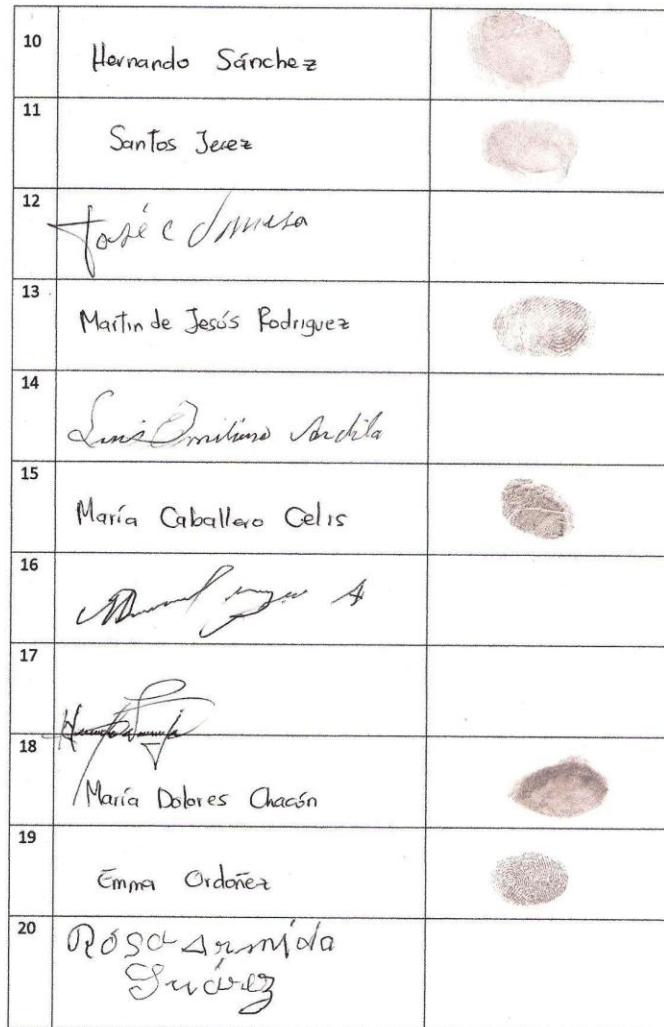 10
Hernando Sánchez
11
Santos Jerez
12
José
13
Martin de Jesús Rodriguez
14
Luis Emiliano Ardila
15
María Caballero Celis
16
17
18
María Dolores Chacón
19
Emma Ordoñez
20
Rosa Armida
Suárez